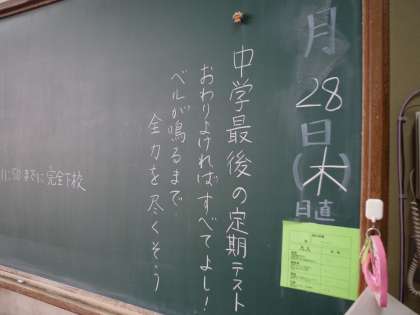 月
28
日
(木)
日直
中学最後の定期テスト
おわりよければすべてよし!
ベルが鳴るまで
全力を尽くそう
11:50までに完全下校